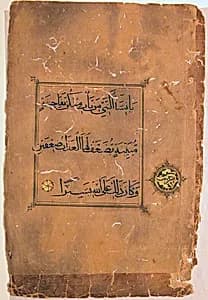 ينساء النبي من يأت منكن بفاحشة
مبينة يضعف لها العذاب ضعفين
وكان ذلك على الله يسيرا